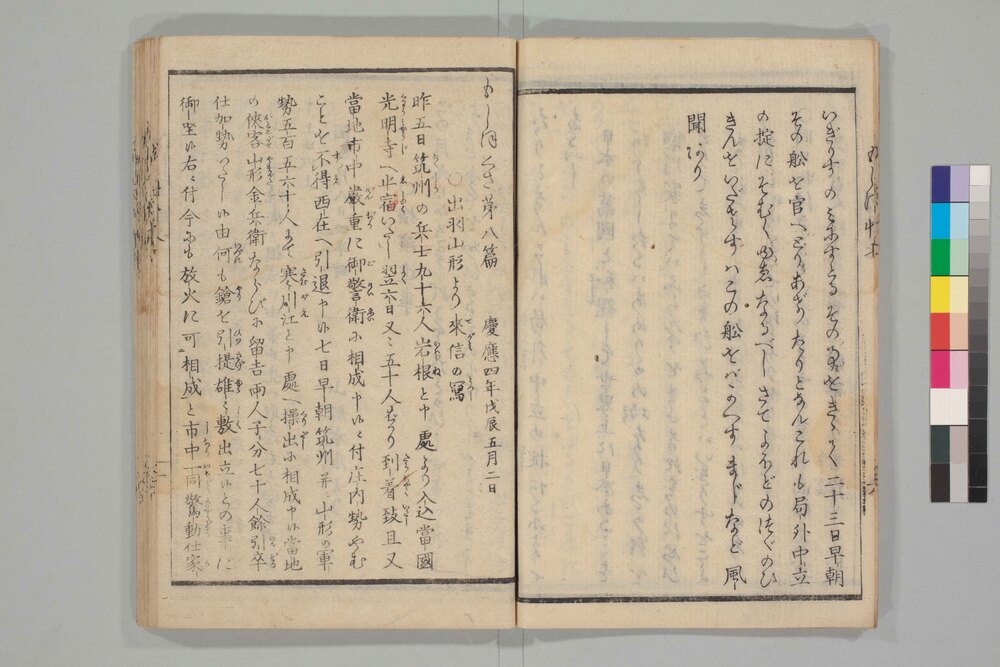 いぎりすのミニすとるそのわけをきゝて二十三日早朝
その舩を官へとりあげたりとなんこれも局外中立
の掟にそむくゆゑなるべしさてよこどのほづのひ
きんをいださずハこの舩をバかへすまじなど風
聞あり
もしほぐさ第八篇 慶應四年戊辰五月二日
○出羽山形より來信の寫
昨五日筑州の兵士九十六人岩根と申處より入込當國
光明寺へ止宿いたし翌六日又々五十人ばかり到着致且又
當地市中嚴重に御警衛ニ相成申候付庄内勢やむ
ことを不得西在へ引退申候七日早朝筑州并ニ山形の軍
勢五百五六十人にて寒河江と申處へ操出ニ相成申候當地
の俠客山形金兵衛ならびに留吉兩人子分七十人餘引卒
仕加勢いたし候由何も鎗を引提雄々敷出立候との事に
御座候右ニ付今にも放火に可相成と市中一同驚動仕家